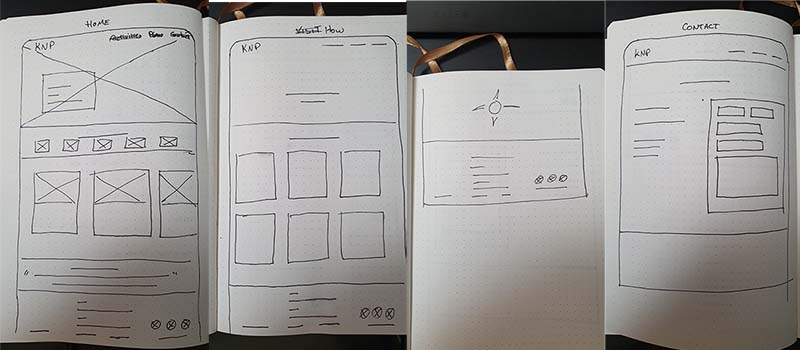 HOME
KNP
Activities Plan Contact
How
KNP
CONTACT
KNP